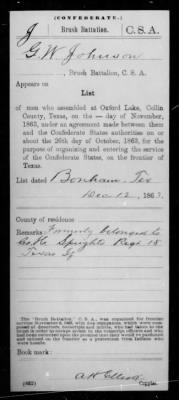 (CONFEDERATE.)
J Brush Battalion, C.S.A.
G. W. Johnson
, Brush Battalion, C. S. A.
Appears on
List
of men who assembled at Oxford Lake, Collin
County, Texas, on the — day of November,
1863, under an agreement made between them
and the Confederate authorities on or
about the 26th day of October, 1863, for the
purpose of organizing and entering the service
of the Confederate States, on the frontier of
Texas.
List dated Bonham, Tex
Dec 12, 1863.
County of residence
Remarks: Formerly belonged to
Co. Speights Regt 15
Texas
The "Brush Battalion," C.S.A., was organized for frontier
service November 6, 1863, with
Book mark:
(642) A. H. Elliott
Copyist.